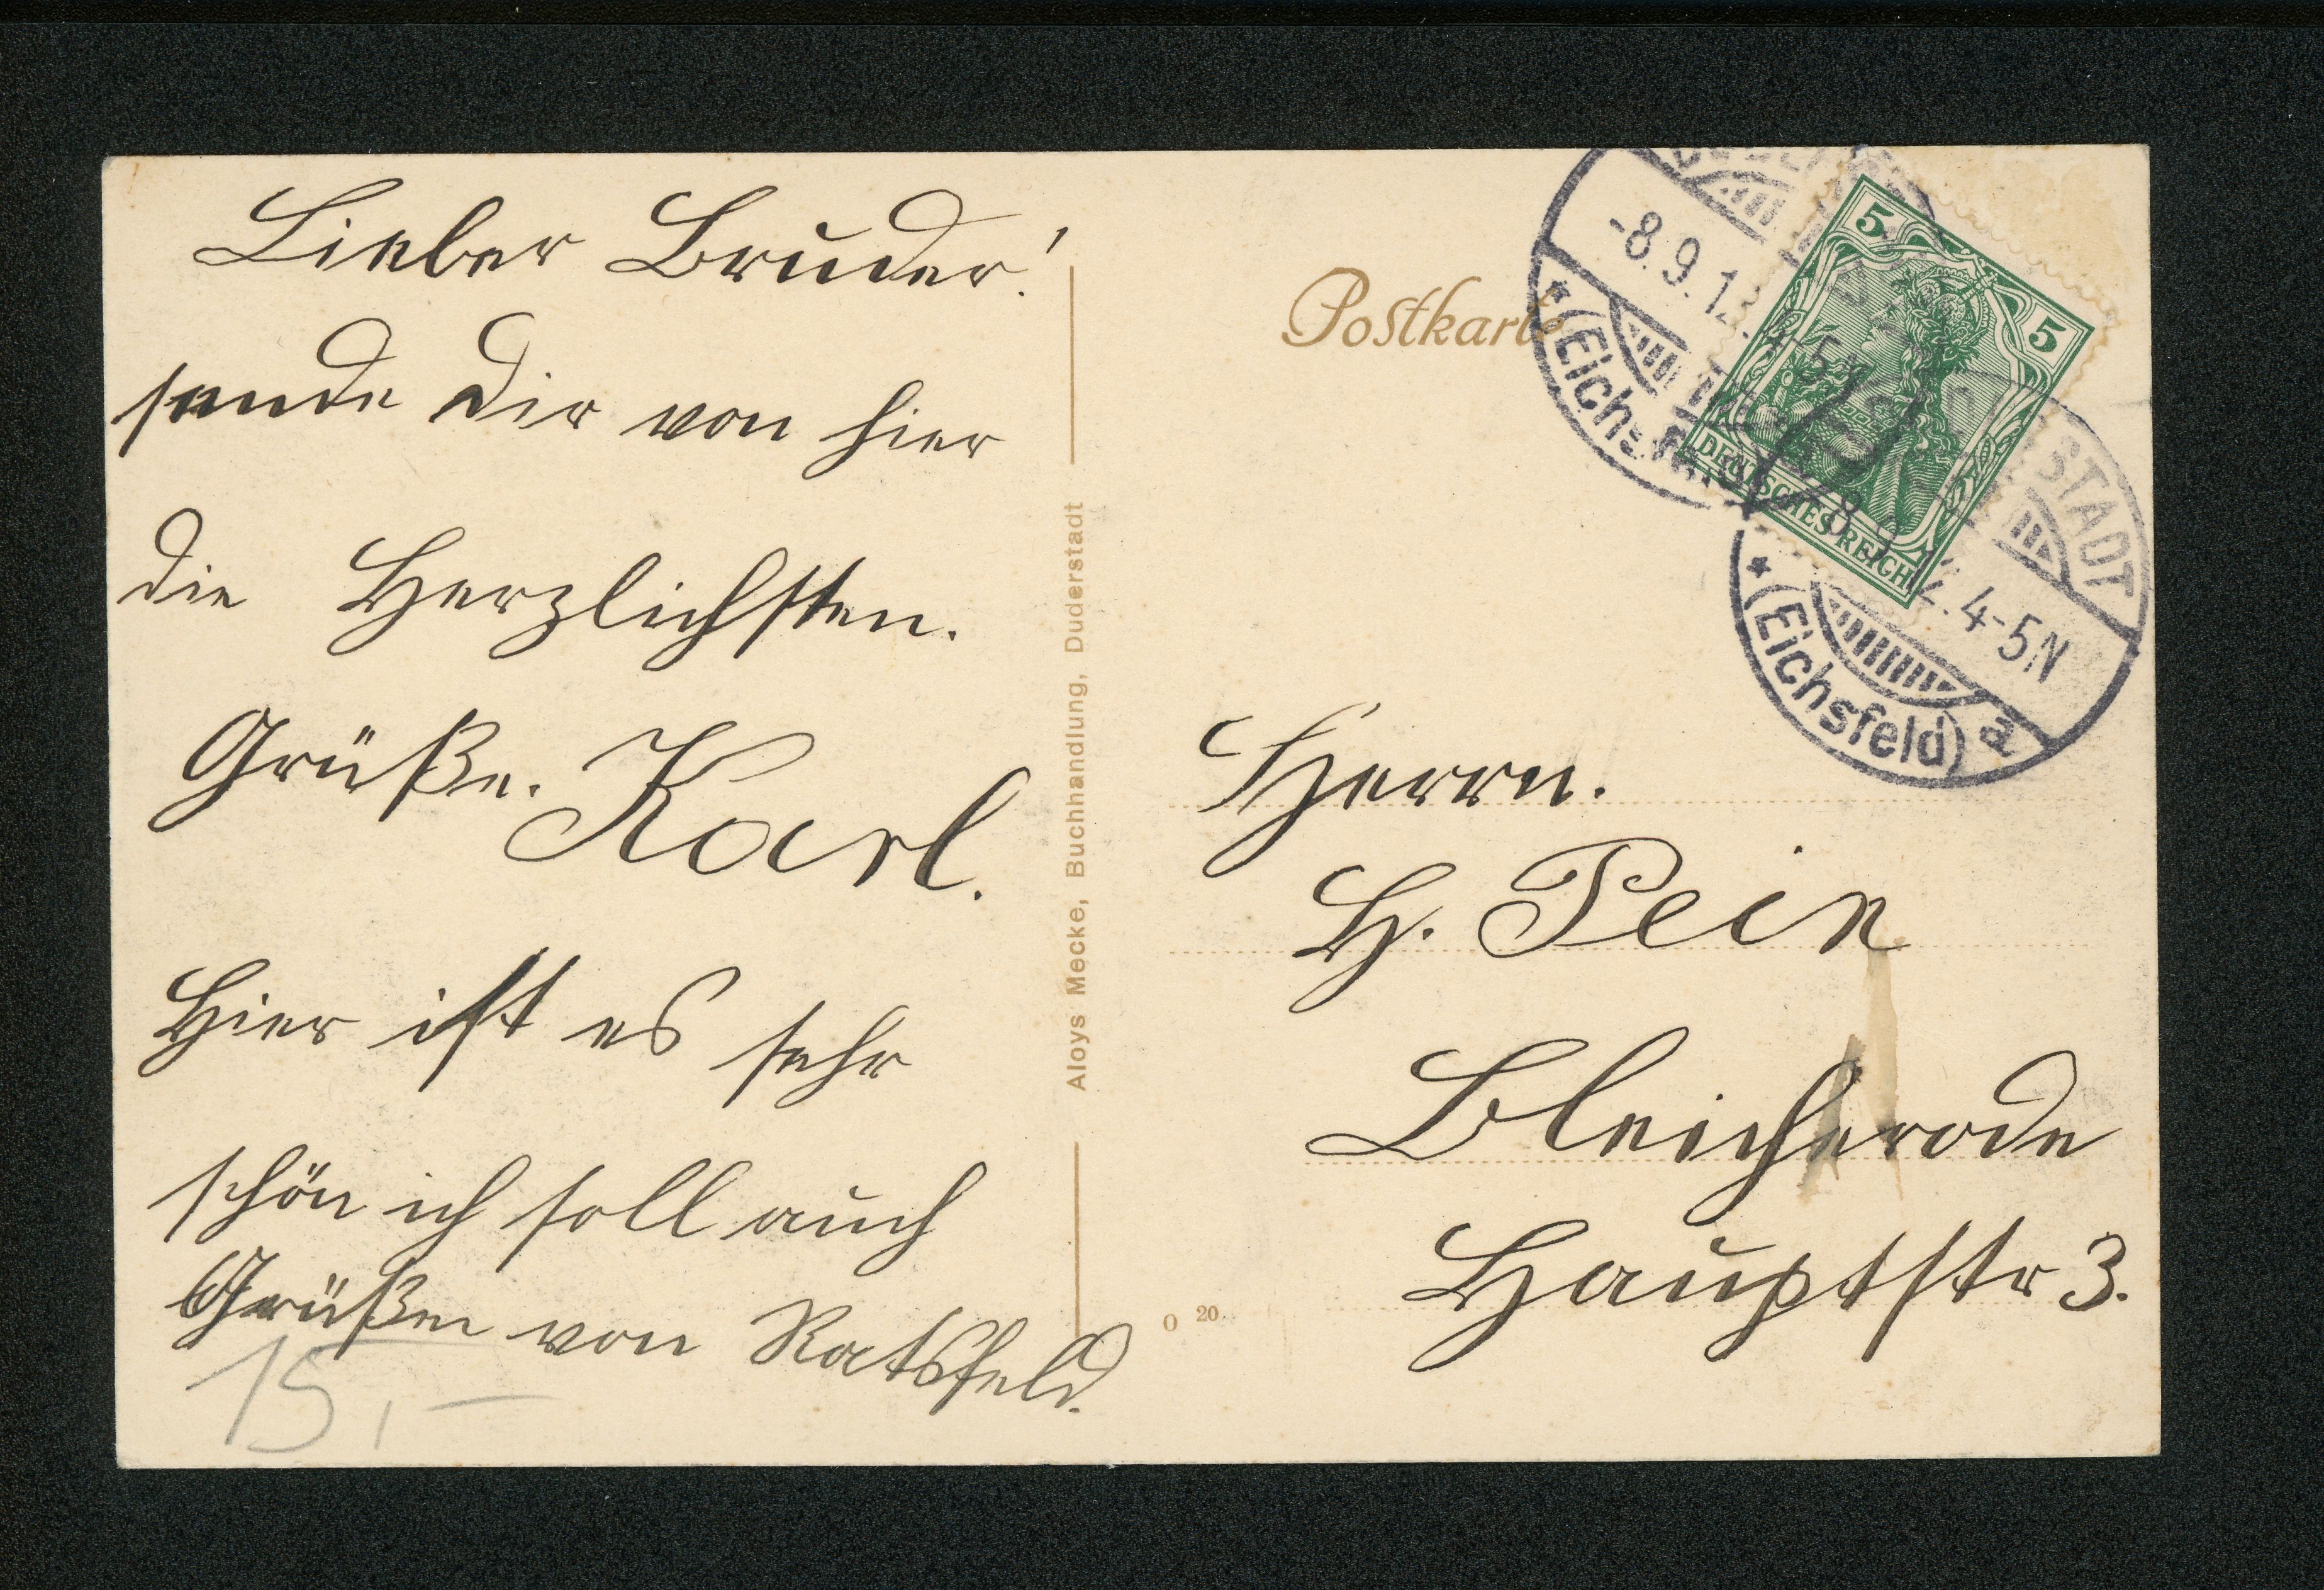 Lieber Bruder!
sende Dir von hier
die Herzlichsten.
Grüße. Karl.
Hier ist es sehr
schön ich soll auch
Grüßen von Ratsfeld.
15,-
Aloys Mecke, Buchhandlung, Duderstadt
Postkarte
-8.9.12. 4-5N
* (Eichsfeld)
5
5
DEUTSCHES REICH
STADT
8.9.12. 4-5N
* (Eichsfeld) a
Herrn.
H. Pein
Bleicherode
Hauptstr 3.
O 20